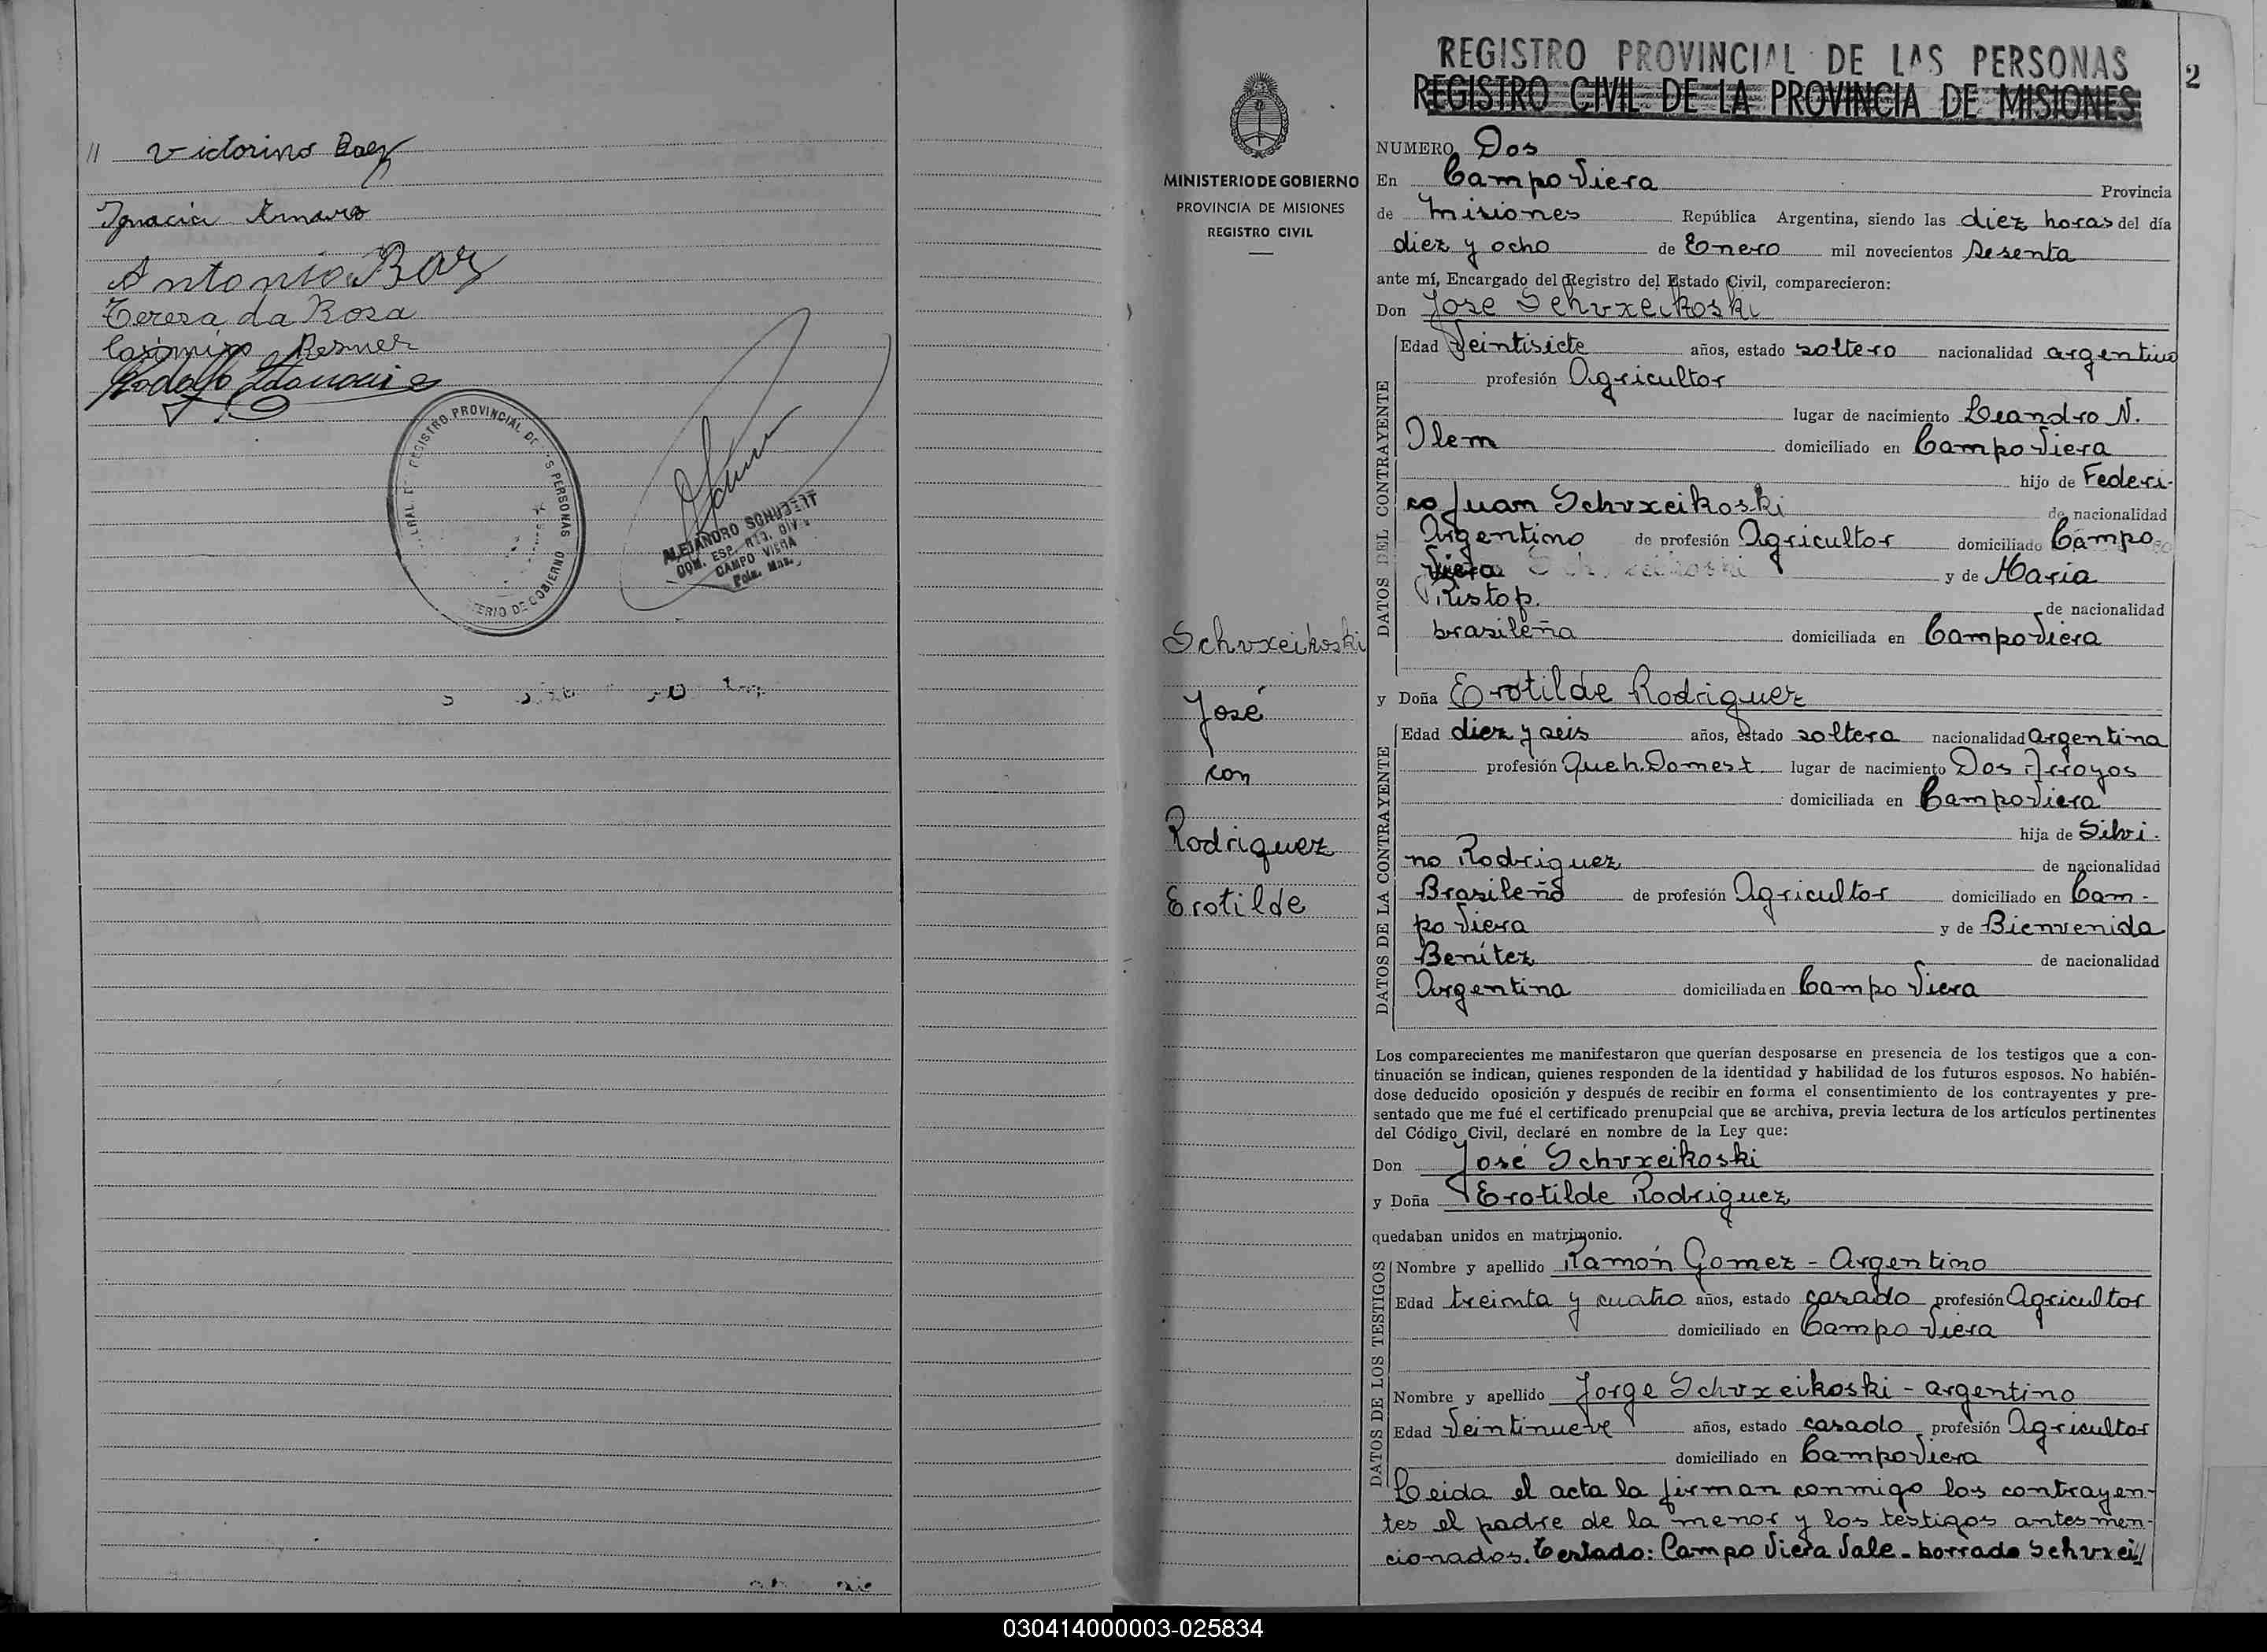 // Victorino Baez
Ignacia Amaro
Antonio Baz
Teresa da Rosa
Casimiro Resner
REGISTRO PROVINCIAL DE PERSONAS
DE GOBIERNO
ALEJANDRO SCHUBERT
CAMPO VIERA
MINISTERIO DE GOBIERNO
PROVINCIA DE MISIONES
REGISTRO CIVIL
Schvxeikoski
José
con
Rodriguez
Erotilde
REGISTRO PROVINCIAL DE LAS PERSONAS
REGISTRO CIVIL DE LA PROVINCIA DE MISIONES
2
NUMERO Dos
En Campo Viera Provincia
de Misiones República Argentina, siendo las diez horas del día
diez y ocho de Enero mil novecientos sesenta
ante mí, Encargado del Registro del Estado Civil, comparecieron:
Don José Schvxeikoski
DATOS DEL CONTRAYENTE
Edad Veintisiete años, estado soltero nacionalidad argentino
profesión Agricultor
lugar de nacimiento Leandro N.
Alem domiciliado en Campo Viera
hijo de Federi-
co Juan Schvxeikoski de nacionalidad
Argentino de profesión Agricultor domiciliado Campo
Viera y de Maria
Ristop. de nacionalidad
brasileña domiciliada en Campo Viera
y Doña Erotilde Rodriguez
DATOS DE LA CONTRAYENTE
Edad diez y seis años, estado soltera nacionalidad argentina
profesión Queh. Domest. lugar de nacimiento Dos Arroyos
domiciliada en Campo Viera
hija de Silvi-
no Rodriguez de nacionalidad
Brasileño de profesión Agricultor domiciliado en Cam-
po Viera y de Bienvenida
Benítez de nacionalidad
Argentina domiciliada en Campo Viera
Los comparecientes me manifestaron que querían desposarse en presencia de los testigos que a con-
tinuación se indican, quienes responden de la identidad y habilidad de los futuros esposos. No habién-
dose deducido oposición y después de recibir en forma el consentimiento de los contrayentes y pre-
sentado que me fué el certificado prenupcial que se archiva, previa lectura de los artículos pertinentes
del Código Civil, declaré en nombre de la Ley que:
Don José Schvxeikoski
y Doña Erotilde Rodriguez
quedaban unidos en matrimonio.
DATOS DE LOS TESTIGOS
Nombre y apellido Ramón Gomez - Argentino
Edad treinta y cuatro años, estado casado profesión Agricultor
domiciliado en Campo Viera
Nombre y apellido Jorge Schvxeikoski - argentino
Edad Veintinueve años, estado casado profesión Agricultor
domiciliado en Campo Viera
Leida el acta la firman conmigo los contrayen-
tes el padre de la menor y los testigos antes men-
cionados. Testado: Campo Viera Vale - borrado Schvxei//
030414000003-025834